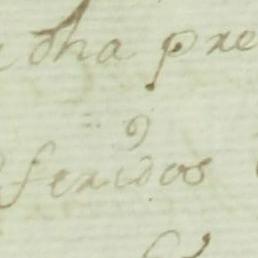 dha pre
feridos